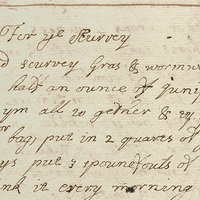 For ye Scurvey
scurvey Gras & wormw
half an ounce of Juni
ym all to gether &
bag, put in 2 quares of
put 3 spounfouls of
it every morning